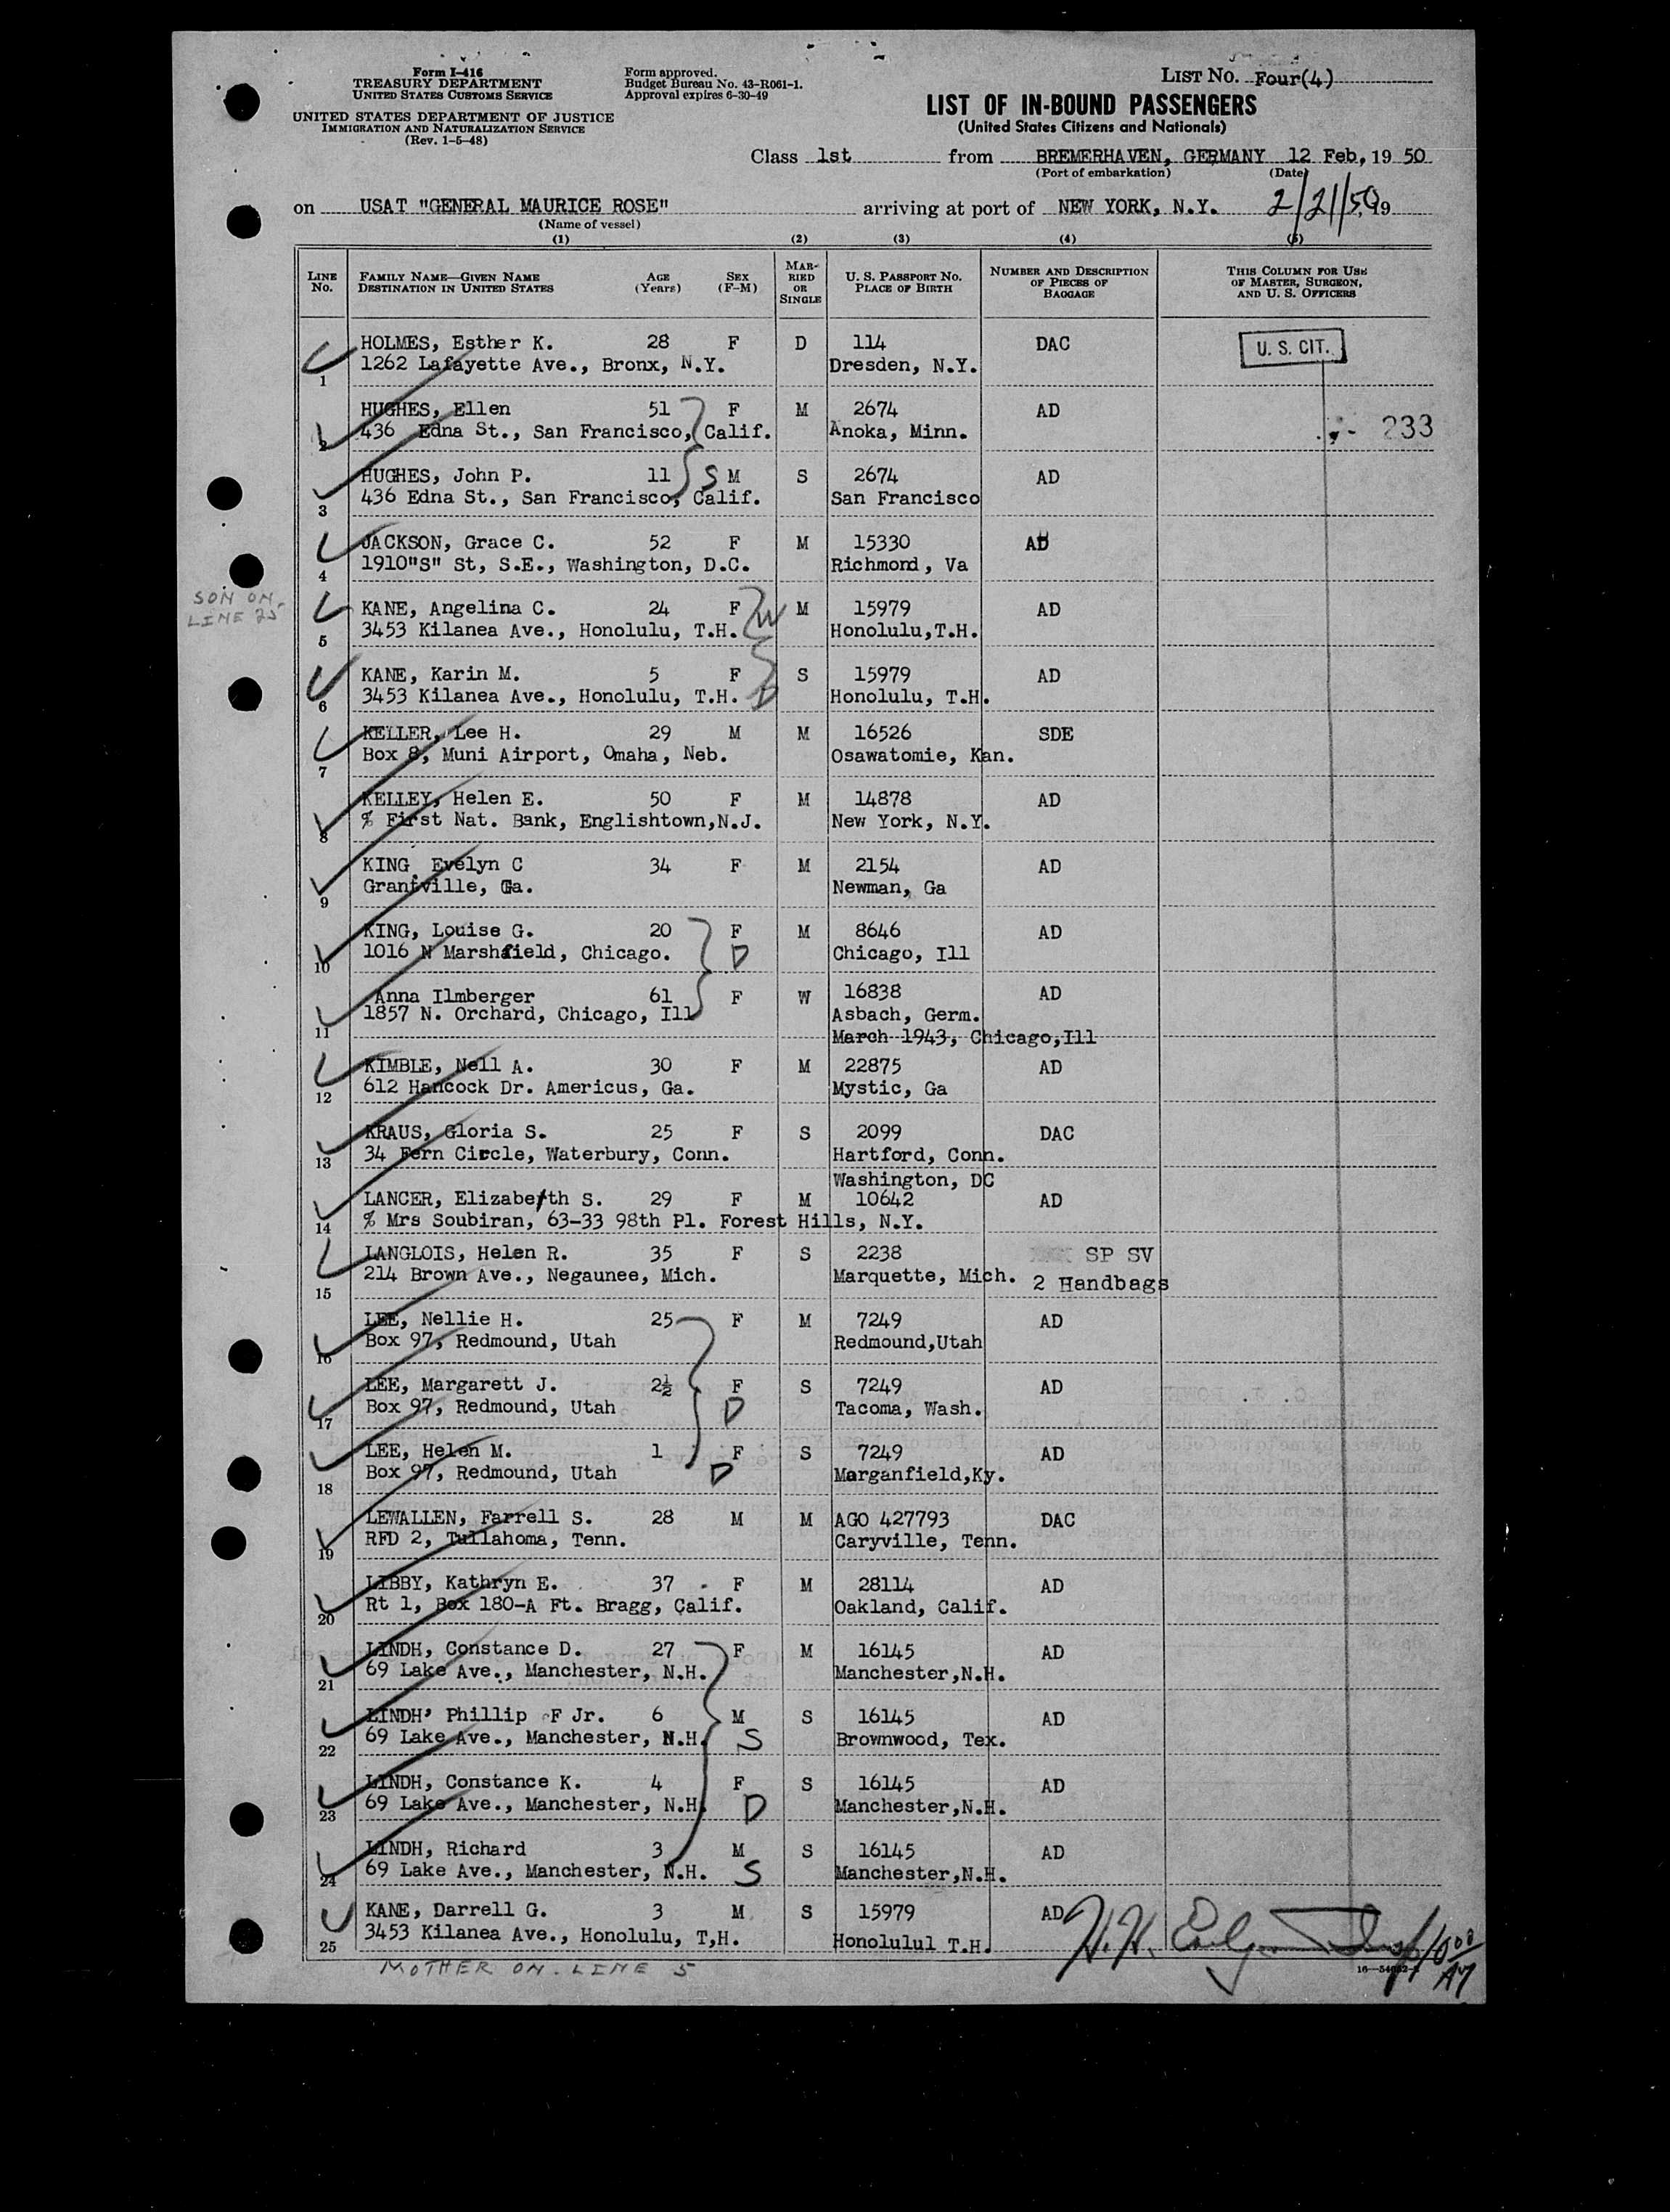 Form I-416
TREASURY DEPARTMENT
UNITED STATES CUSTOMS SERVICE
UNITED STATES DEPARTMENT OF JUSTICE
IMMIGRATION AND NATURALIZATION SERVICE
(Rev. 1-5-48)
Form approved.
Budget Bureau No. 43-R061-1.
Approval expires 6-30-49
LIST NO. Four(4)
LIST OF IN-BOUND PASSENGERS
(United States Citizens and Nationals)
Class 1st from BREMERHAVEN, GERMANY 12 Feb, 19 50
(Port of embarkation) (Date)
on USAT "GENERAL MAURICE ROSE" arriving at port of NEW YORK, N.Y. 2/21/50, 19
(Name of vessel)
(1) (2) (3) (4) (5)
LINE NO. FAMILY NAME—GIVEN NAME DESTINATION IN UNITED STATES AGE (Years) SEX (F-M) MARRIED OR SINGLE U. S. PASSPORT NO. PLACE OF BIRTH NUMBER AND DESCRIPTION OF PIECES OF BAGGAGE THIS COLUMN FOR USE OF MASTER, SURGEON, AND U. S. OFFICERS
HOLMES, Esther K. 28 F D 114 DAC U. S. CIT.
1 1262 Lafayette Ave., Bronx, N.Y. Dresden, N.Y.
HUGHES, Ellen 51 F M 2674 AD
2 436 Edna St., San Francisco, Calif. Anoka, Minn. 233
HUGHES, John P. 11 S M S 2674 AD
3 436 Edna St., San Francisco, Calif. San Francisco
JACKSON, Grace C. 52 F M 15330 AD
4 1910"S" St, S.E., Washington, D.C. Richmond, Va
SON ON LINE 25
KANE, Angelina C. 24 F W M 15979 AD
5 3453 Kilanea Ave., Honolulu, T.H. Honolulu,T.H.
KANE, Karin M. 5 F S 15979 AD
6 3453 Kilanea Ave., Honolulu, T.H. D Honolulu, T.H.
KELLER, Lee H. 29 M M 16526 SDE
7 Box 8, Muni Airport, Omaha, Neb. Osawatomie, Kan.
KELLEY, Helen E. 50 F M 14878 AD
8 % First Nat. Bank, Englishtown,N.J. New York, N.Y.
KING, Evelyn C 34 F M 2154 AD
9 Grantville, Ga. Newman, Ga
KING, Louise G. 20 F M 8646 AD
10 1016 N Marshfield, Chicago. D Chicago, Ill
Anna Ilmberger 61 F W 16838 AD
11 1857 N. Orchard, Chicago, Ill Asbach, Germ.
March 1943, Chicago,Ill
KIMBLE, Nell A. 30 F M 22875 AD
12 612 Hancock Dr. Americus, Ga. Mystic, Ga
KRAUS, Gloria S. 25 F S 2099 DAC
13 34 Fern Circle, Waterbury, Conn. Hartford, Conn.
Washington, DC
LANCER, Elizabeth S. 29 F M 10642 AD
14 % Mrs Soubiran, 63-33 98th Pl. Forest Hills, N.Y.
LANGLOIS, Helen R. 35 F S 2238 SP SV
15 214 Brown Ave., Negaunee, Mich. Marquette, Mich. 2 Handbags
LEE, Nellie H. 25 F M 7249 AD
16 Box 97, Redmound, Utah Redmound,Utah
LEE, Margarett J. 2½ F S 7249 AD
17 Box 97, Redmound, Utah D Tacoma, Wash.
LEE, Helen M. 1 F S 7249 AD
18 Box 97, Redmound, Utah D Marganfield,Ky.
LEWALLEN, Farrell S. 28 M M AGO 427793 DAC
19 RFD 2, Tullahoma, Tenn. Caryville, Tenn.
LIBBY, Kathryn E. 37 F M 28114 AD
20 Rt 1, Box 180-A Ft. Bragg, Calif. Oakland, Calif.
LINDH, Constance D. 27 F M 16145 AD
21 69 Lake Ave., Manchester, N.H. Manchester,N.H.
LINDH' Phillip F Jr. 6 M S 16145 AD
22 69 Lake Ave., Manchester, N.H. S Brownwood, Tex.
LINDH, Constance K. 4 F S 16145 AD
23 69 Lake Ave., Manchester, N.H. D Manchester,N.H.
LINDH, Richard 3 M S 16145 AD
24 69 Lake Ave., Manchester, N.H. S Manchester,N.H.
KANE, Darrell G. 3 M S 15979 AD
25 3453 Kilanea Ave., Honolulu, T,H. Honolulul T.H.
MOTHER ON LINE 5